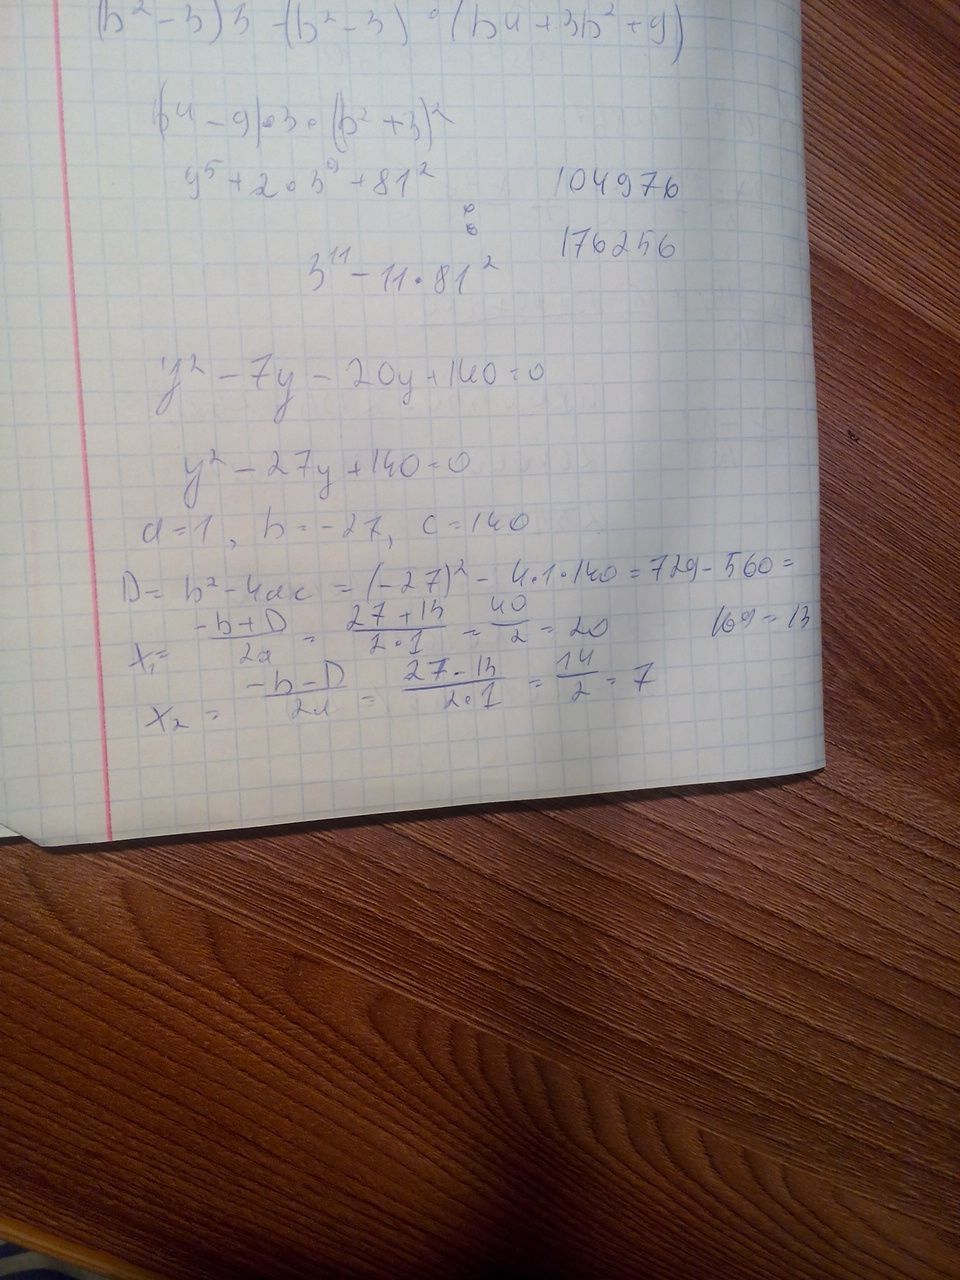 (b² - 3)3 - (b² - 3) · (b4 + 3b² + 9)
b⁴ - 9)·3·(b² + 3)²
9⁵ + 2·3⁹ + 81² 104976
:
3¹¹ - 11·81² 176256
y² - 7y - 20y + 140 = 0
y² - 27y + 140 = 0
a = 1, b = -27, c = 140
D = b² - 4ac = (-27)² - 4·1·140 = 729 - 560 =
169 = 13
x₁ = -b+D/2a = 27+13/2·1 = 40/2 = 20
x₂ = -b-D/2a = 27-13/2·1 = 14/2 = 7